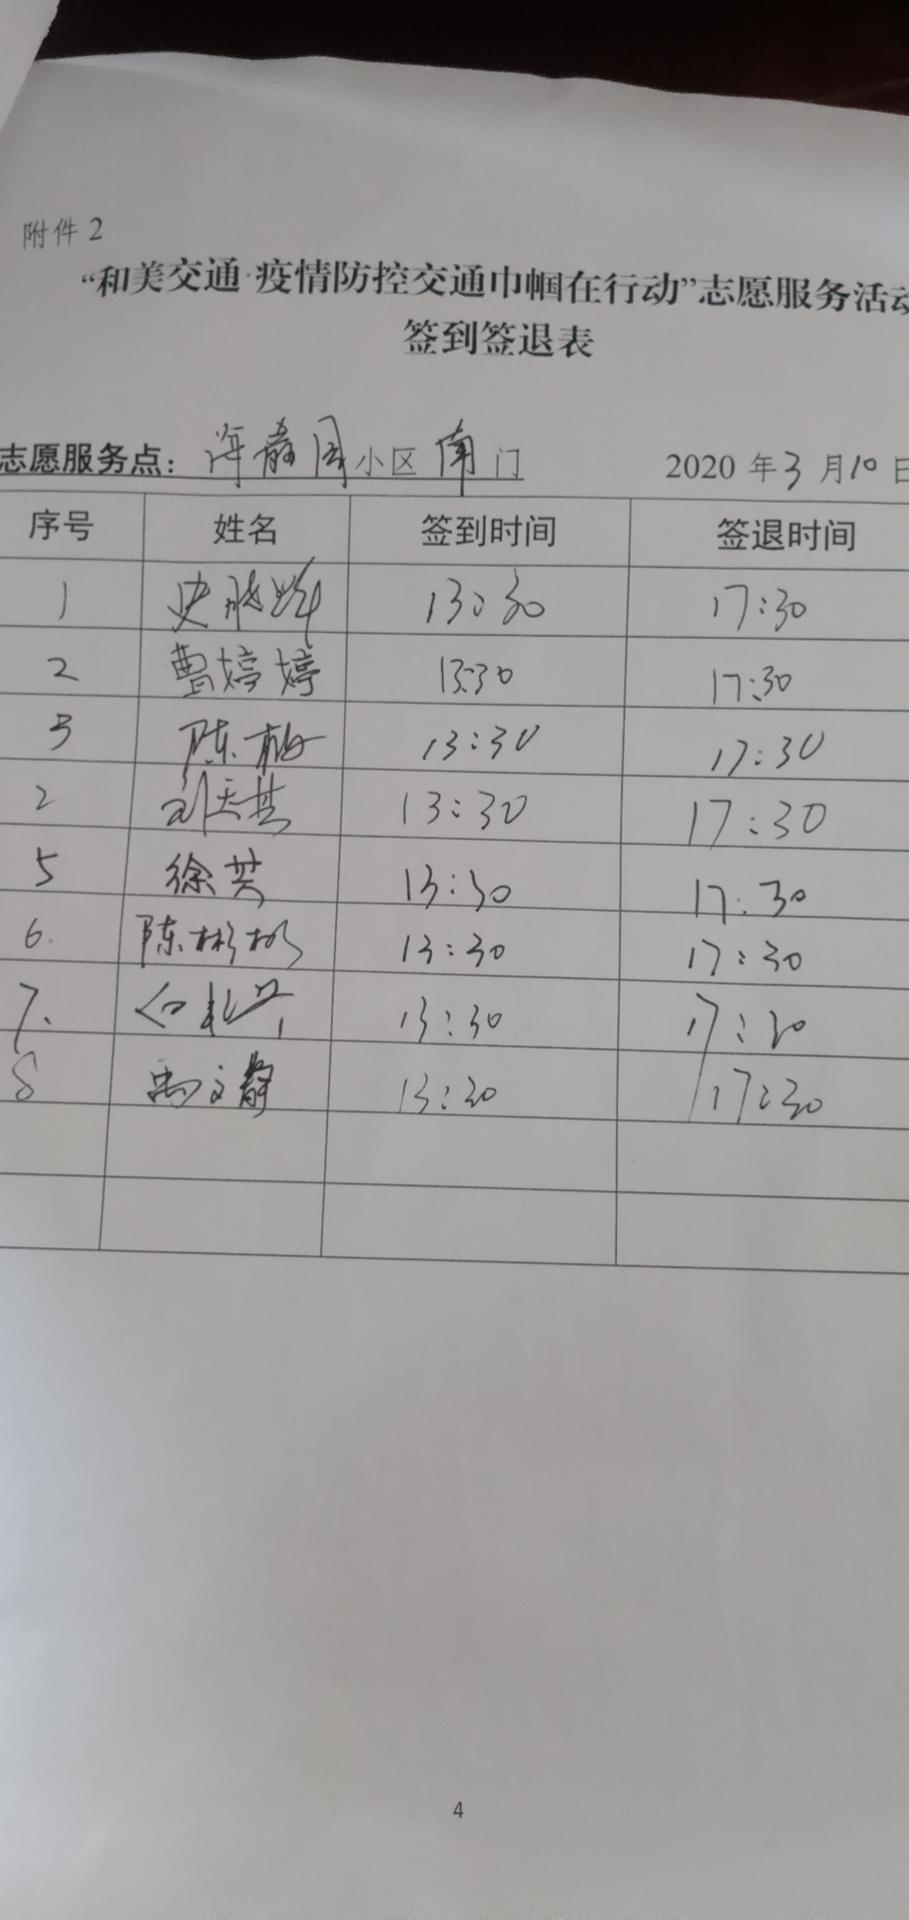 附件2
“和美交通·疫情防控交通巾帼在行动”志愿服务活动
签到签退表
志愿服务点：海馨园小区南门 2020年3月10日
序号 姓名 签到时间 签退时间
1 史 13:30 17:30
2 曹婷婷 13:30 17:30
3 陈梅 13:30 17:30
2 刘天其 13:30 17:30
5 徐英 13:30 17:30
6. 陈彬彬 13:30 17:30
7. 13:30 17:30
8 禹文静 13:30 17:30
4